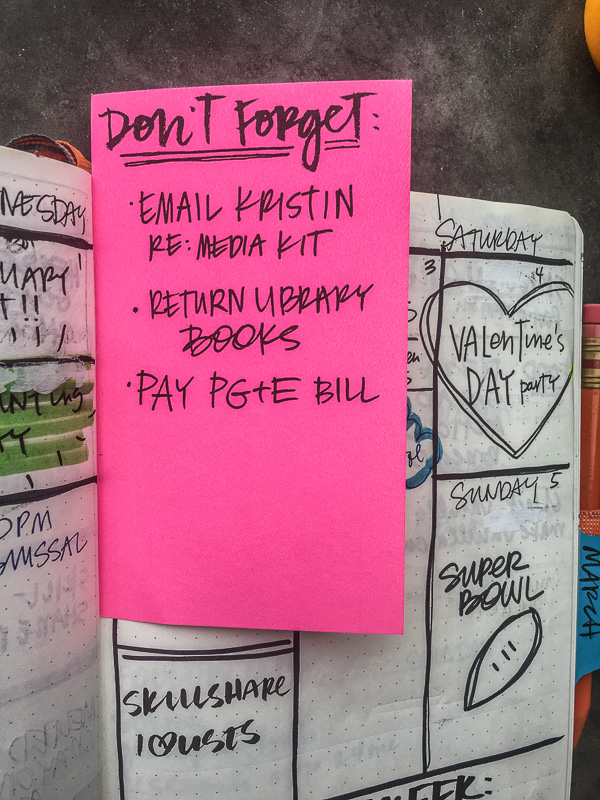 DON'T FORGET:
· EMAIL KRISTIN
RE: MEDIA KIT
· RETURN LIBRARY
BOOKS
· PAY PG+E BILL
SATURDAY
3
4
VALENTINE'S
DAY PARTY
SUNDAY 5
SUPER
BOWL
MARCH
SKILLSHARE
I ♡ LISTS